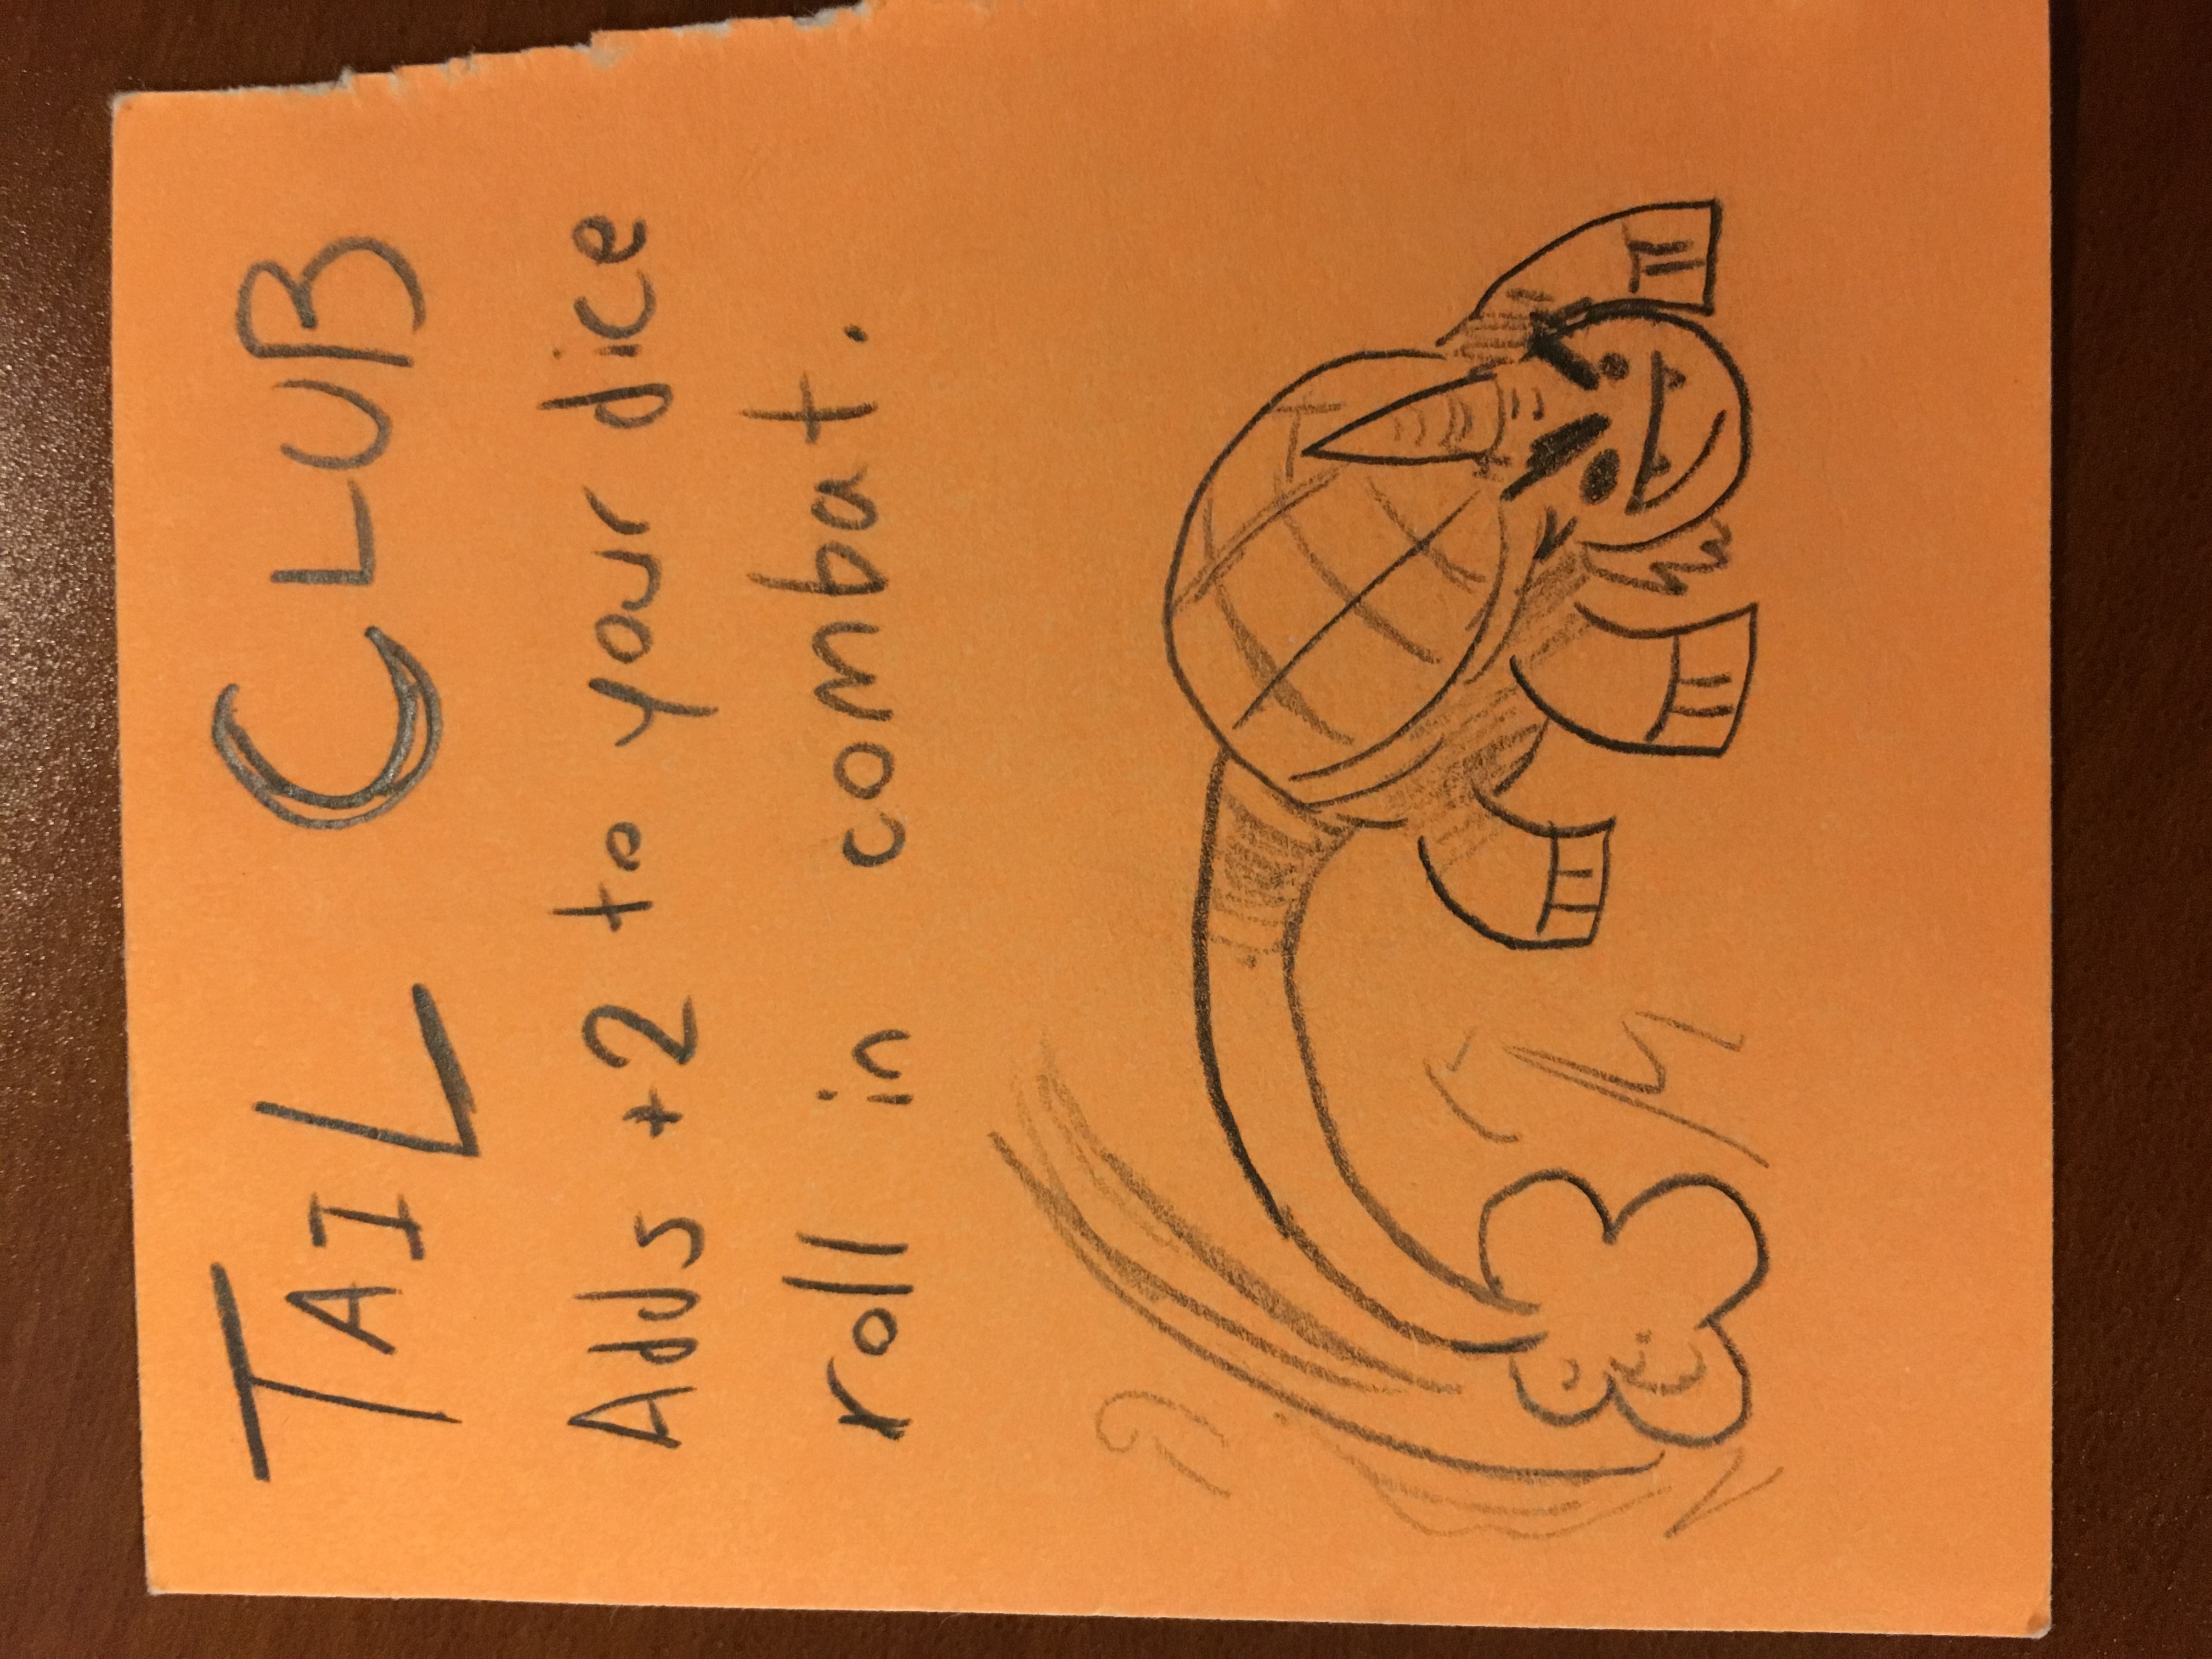 TAIL CLUB
Adds +2 to your dice
roll in combat.